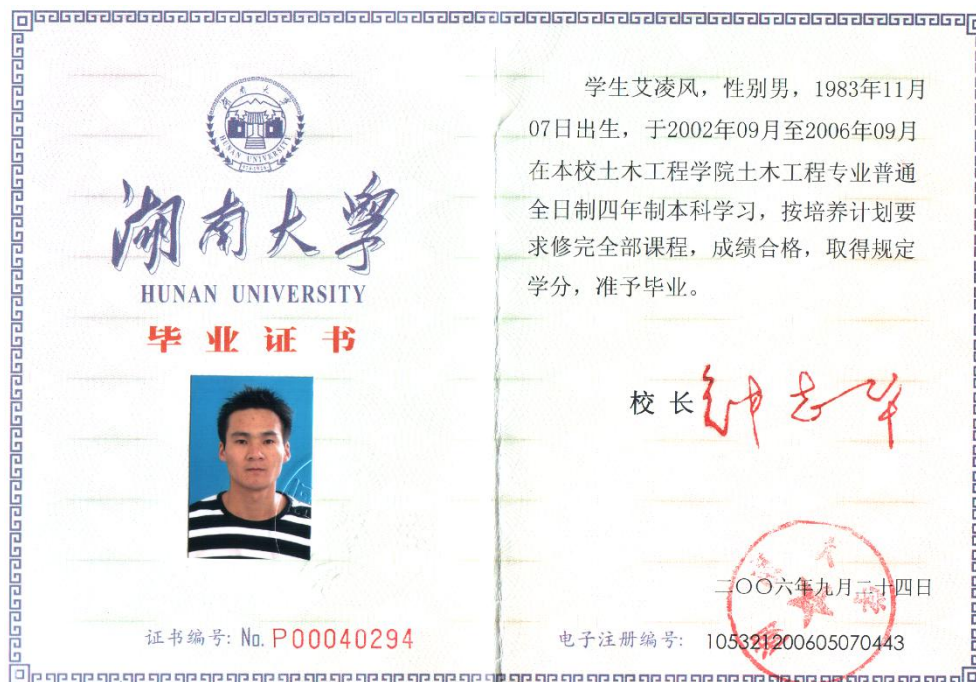 湖南大学
HUNAN UNIVERSITY
湖南大学
HUNAN UNIVERSITY
毕业证书
证书编号: No. P00040294
学生艾凌风，性别男，1983年11月
07日出生，于2002年09月至2006年09月
在本校土木工程学院土木工程专业普通
全日制四年制本科学习，按培养计划要
求修完全部课程，成绩合格，取得规定
学分，准予毕业。
校长 钟志华
二〇〇六年九月二十四日
电子注册编号: 105321200605070443